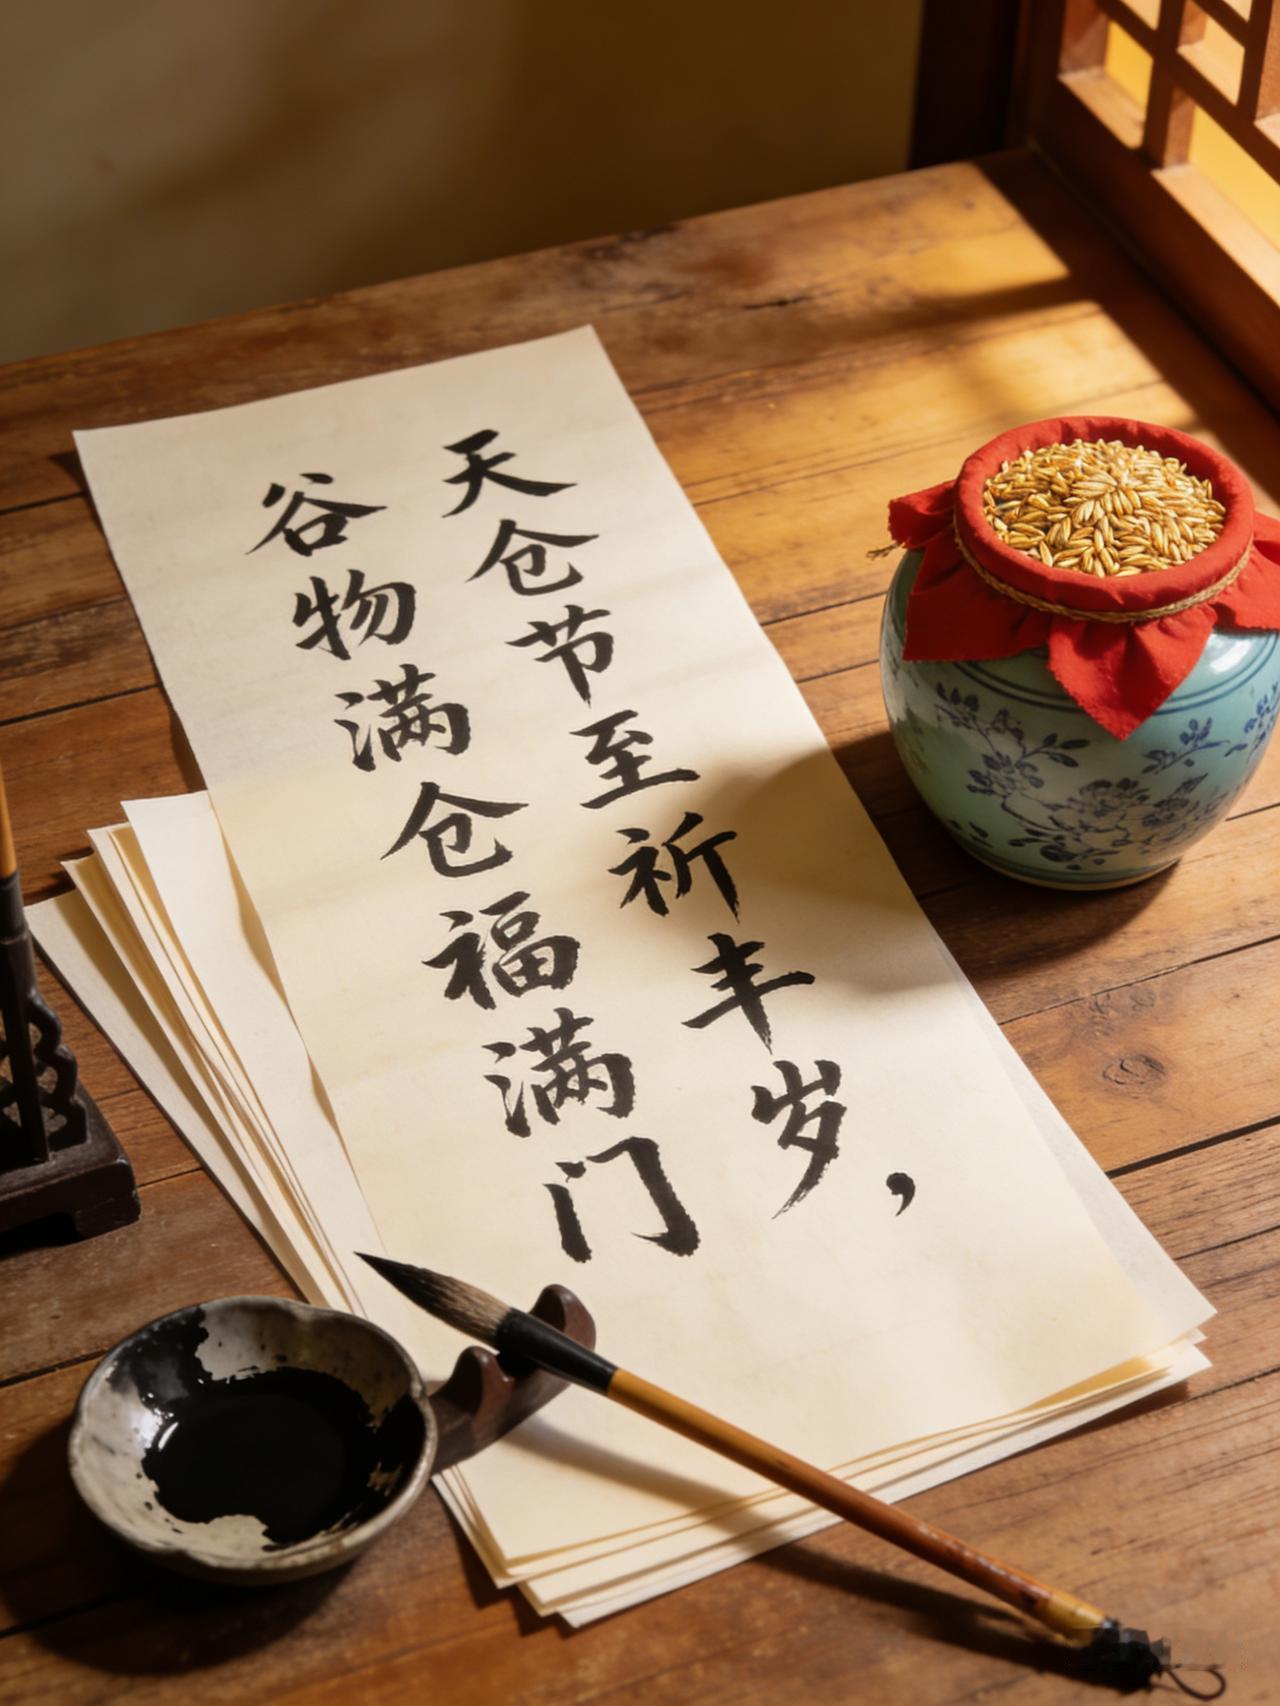 天仓节至祈丰岁，
谷物满仓福满门